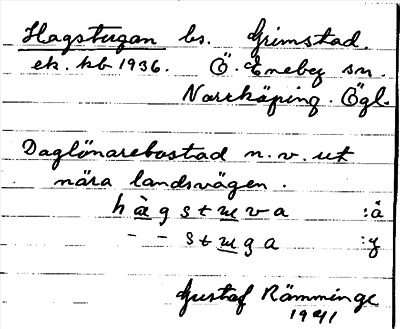 Hagstugan bs. Grimstad.
ek. kb 1936. Ö. Eneby sn.
Norrköping. Ögl.
Daglönarebostad n. v. ut
nära landsvägen.
h a g s t u v a :å
– – s t u g a :y
Gustaf Rämminge
1941